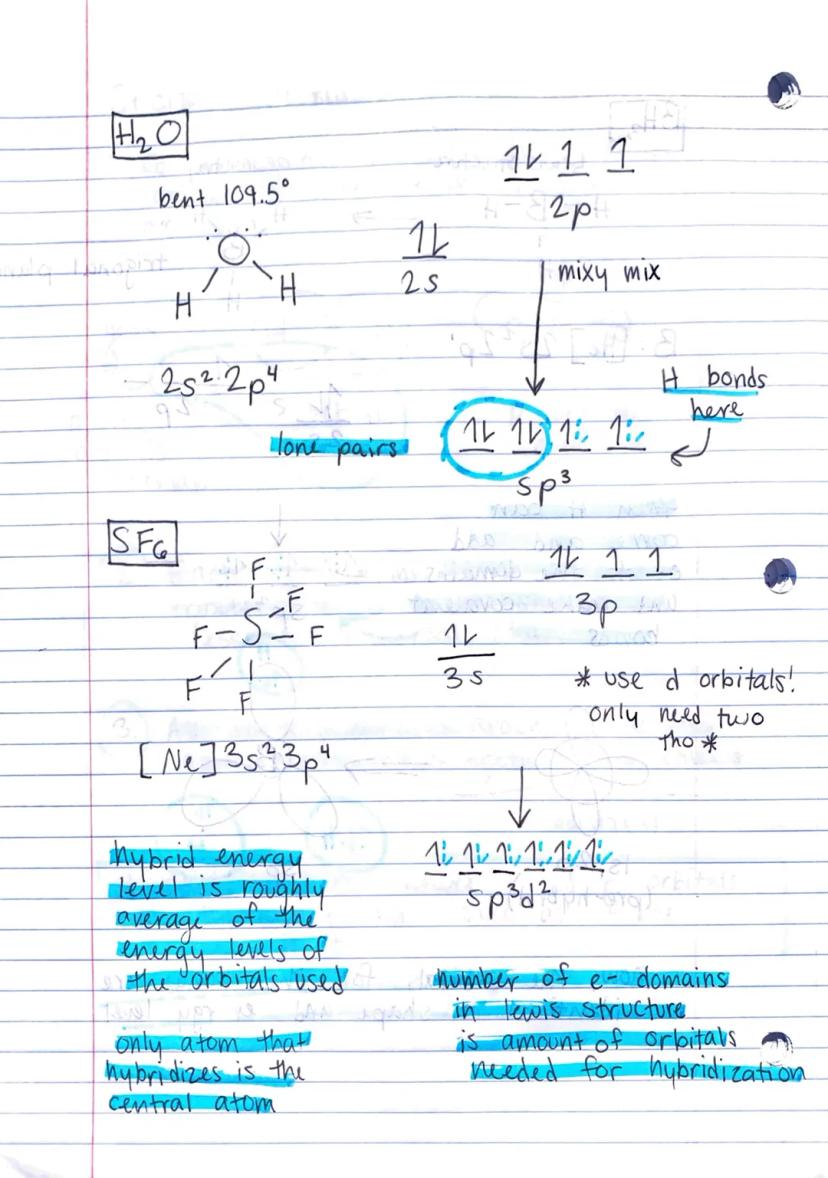 H₂O
bent 109.5°
O
H H
2s² 2p⁴
1L 1 1
2p
1L
2s
mixy mix
H bonds
here
lone pairs
1L 1L 1 1
sp³
SF₆
F
F
F-S-F
F
F
[Ne]3s²3p⁴
1L 1 1
3p
1L
3s
* use d orbitals!
only need two
tho *
1 1 1 1 1 1
sp³d²
hybrid energy
level is roughly
average of the
energy levels of
the orbitals used
only atom that
hybridizes is the
central atom
number of e- domains
in lewis structure
is amount of orbitals
needed for hybridization